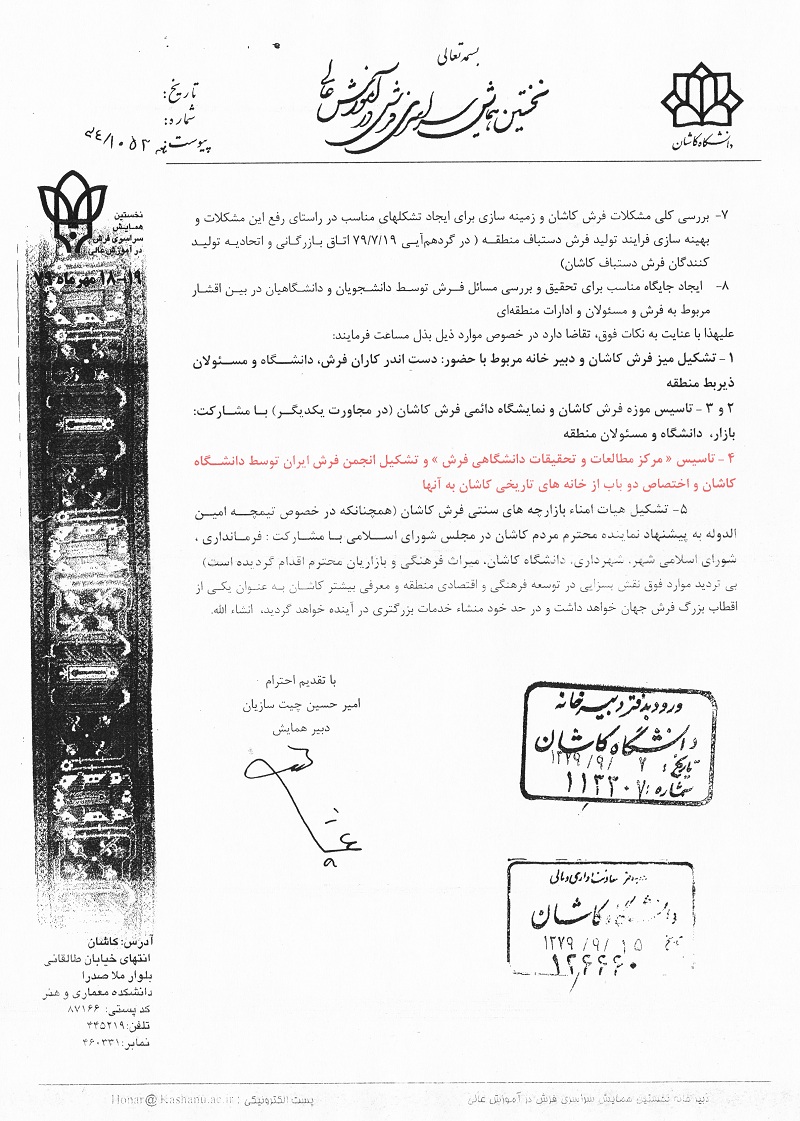 بسمه تعالی
نخستین همایش سراسری فرش در آموزش عالی
دانشگاه کاشان
تاریخ:
شماره:
پیوست
نخستین
همایش
سراسری فرش
در آموزش عالی
۱۸-۱۹ مهرماه ۷۹
۷- بررسی کلی مشکلات فرش کاشان و زمینه سازی برای ایجاد تشکلهای مناسب در راستای رفع این مشکلات و
بهینه سازی فرایند تولید فرش دستباف منطقه ( در گردهم‌آیی ۷۹/۷/۱۹ اتاق بازرگانی و اتحادیه تولید
کنندگان فرش دستباف کاشان)
۸- ایجاد جایگاه مناسب برای تحقیق و بررسی مسائل فرش توسط دانشجویان و دانشگاهیان در بین اقشار
مربوط به فرش و مسئولان و ادارات منطقه‌ای
علیهذا با عنایت به نکات فوق، تقاضا دارد در خصوص موارد ذیل بذل مساعت فرمایند:
۱ - تشکیل میز فرش کاشان و دبیر خانه مربوط با حضور: دست اندر کاران فرش، دانشگاه و مسئولان
ذیربط منطقه
۲ و ۳ - تاسیس موزه فرش کاشان و نمایشگاه دائمی فرش کاشان (در مجاورت یکدیگر) با مشارکت:
بازار، دانشگاه و مسئولان منطقه
۴ - تاسیس « مرکز مطالعات و تحقیقات دانشگاهی فرش » و تشکیل انجمن فرش ایران توسط دانشگاه
کاشان و اختصاص دو باب از خانه های تاریخی کاشان به آنها
۵- تشکیل هیات امناء بازارچه های سنتی فرش کاشان (همچنانکه در خصوص تیمچه امین
الدوله به پیشنهاد نماینده محترم مردم کاشان در مجلس شورای اسلامی با مشارکت : فرمانداری ،
شورای اسلامی شهر، شهرداری، دانشگاه کاشان، میراث فرهنگی و بازاریان محترم اقدام گردیده است)
بی تردید موارد فوق نقش بسزایی در توسعه فرهنگی و اقتصادی منطقه و معرفی بیشتر کاشان به عنوان یکی از
اقطاب بزرگ فرش جهان خواهد داشت و در حد خود منشاء خدمات بزرگتری در آینده خواهد گردید، انشاء الله.
با تقدیم احترام
امیر حسین چیت سازیان
دبیر همایش
ورود به دفتر دبیرخانه
دانشگاه کاشان
تاریخ: ۷ /۹/ ۱۳۷۹
شماره: ۱۱۳۳۰۷
معاونت اداری و مالی
دانشگاه کاشان
۱۵ /۹/ ۱۳۷۹
آدرس: کاشان
انتهای خیابان طالقانی
بلوار ملا صدرا
دانشکده معماری و هنر
کد پستی: ۸۷۱۶۶
تلفن: ۴۴۵۲۱۹
نمابر: ۴۶۰۳۳۱
دبیر خانه نخستین همایش سراسری فرش در آموزش عالی
پست الکترونیکی : Honar@Kashanu.ac.ir